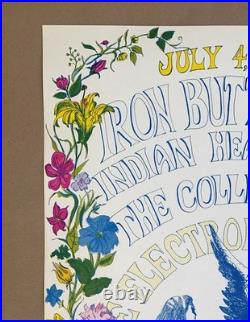 JULY 4,
IRON BUT
INDIAN HEA
THE COLLE
ELECTRO